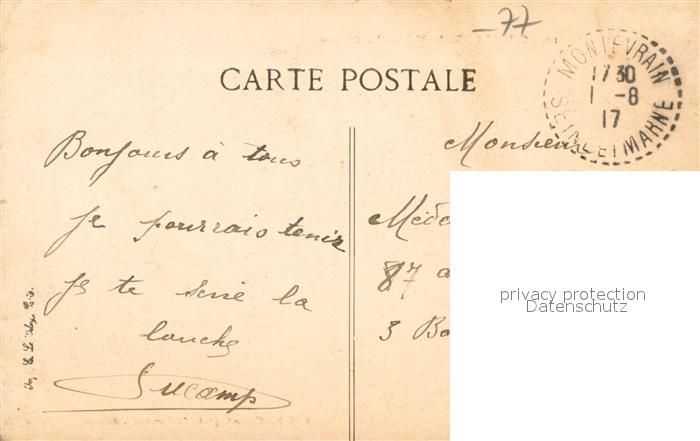 -77
CARTE POSTALE
MONTEVRAIN
1730
1 -8
17
SEINE ET MARNE
Bonjours à tous
Je pourrais tenir
Je te serre la
Ducamp
Monsieur
Méde
87 a
3 Bo
privacy protection
Datenschutz